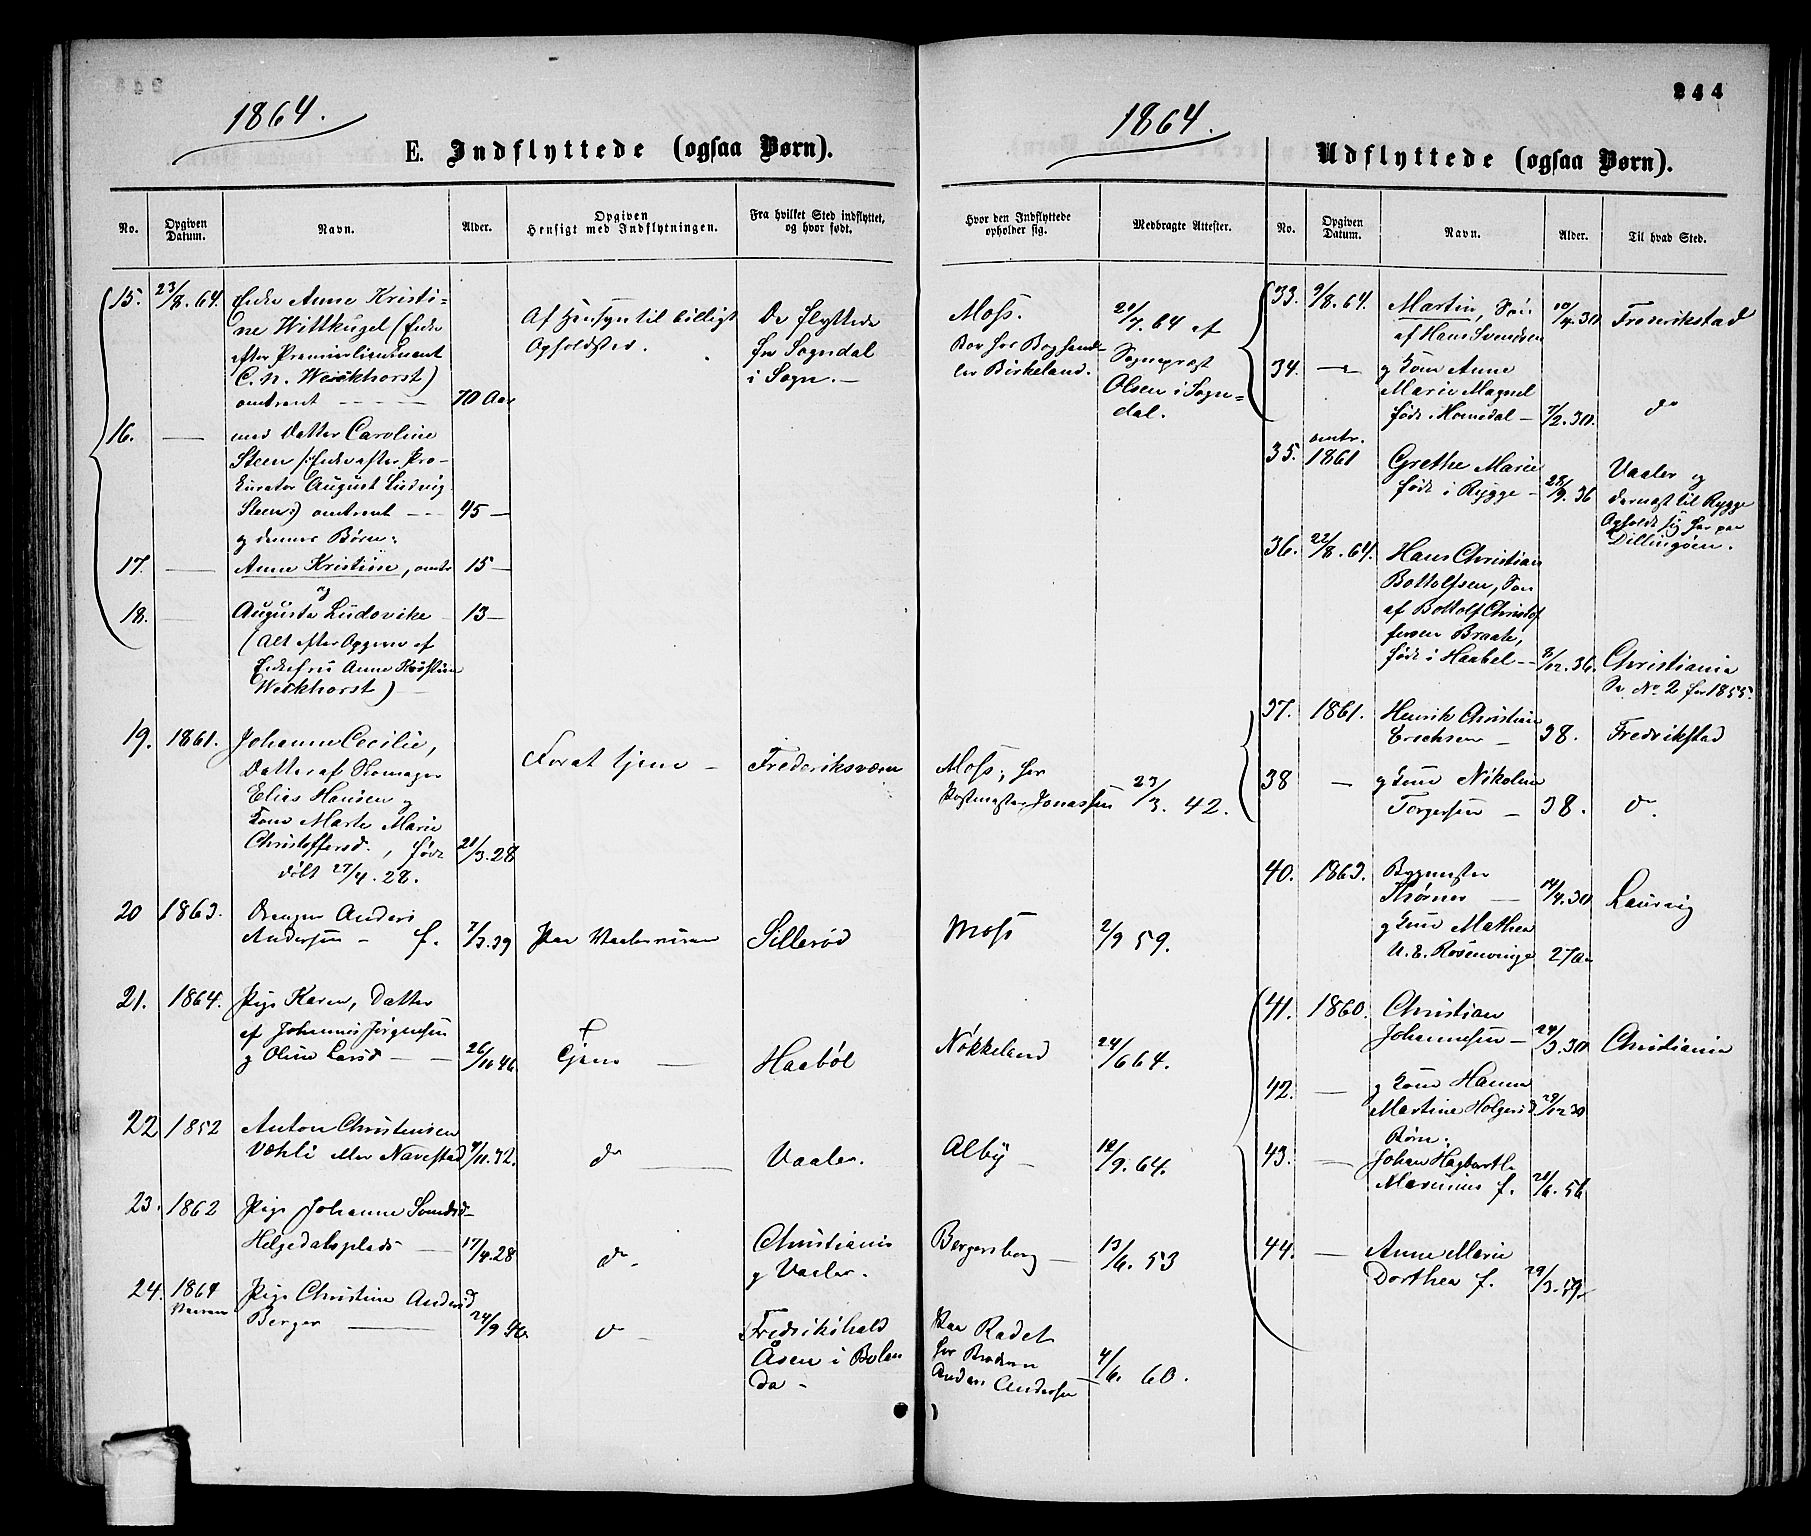 244
1864.
E. Indflyttede (ogsaa Børn).
No.
Opgiven Datum.
Navn.
Alder.
Opgiven Hensigt med Indflytningen.
Fra hvilket Sted indflyttet, og hvor født.
15. 23/8.64. Enke Anne Kristi-
ne Wittkugel (Enke
efter Premierlieutenant
C. N. Weickhorst)
omtrent 70 Aar
Af Hensyn til billigt
Opholdsted.
De flyttede
fra Sogndal
i Sogn.
16. — med Datter Caroline
Steen (: Enke efter Pro-
kurator August Ludvig
Steen:) omtrent 45 —
og dennes Børn:
17. — Anne Kristine, omtr 15 —
og
18. — Augusta Ludovike 13 —
(Alt efter Opgave af
Enkefru Anne Kristine
Weickhorst)
19. 1861. Johanne Cecilie,
Datter af Skomager
Elias Hansen og
Kone Marte Marie
Christoffersd., født 21/3.28
døbt 27/4.28.
For at tjene — Frederiksværn
20 1863. Drengen Anders
Andersen — f. 7/3.39
Paa Vaaleveien Sillerød
21. 1864. Pige Karen, Datter
af Johannes Jørgensen
og Oline Larsd — 26/10 46
Tjene — Haabøl
22 1852 Anton Christensen
Væhli eller Navestad 4/11.32.
do — Vaaler.
23. 1862 Pige Johanne
Helgedalsplads — 17/4.28
do. Christiania
og Vaaler.
24. 1864 Pige Christine Andersd
Berger — 24/9 40.
do — Fredrikshald
Åsen i
1864.
Hvor den Indflyttede opholder sig.
Medbragte Attester.
Moss.
Bor hos Boghand-
ler Birkeland.
21/7.64 af
Sogneprest
Olsen i Sogn-
dal.
Moss, hos
Postmester Jonassen 23/3. 42.
Moss 2/9 59.
Nøkkeland 24/6 64.
Alby — 19/9. 64.
Bergersborg — 13/6. 53
Paa Radet
hos Broderen
Anders Andersen — 4/6. 60.
Udflyttede (ogsaa Børn).
No.
Opgiven Datum.
Navn.
Alder.
Til hvad Sted.
33. 9/8.64. Martin, Søn
af Hans Svendsen 10/4.30 Fredrikstad
34. — og Kone Anne
Marie Magnel
født i Homedal — 7/2.30. do
35. omtr.
1861 Grethe Marie
født i Rygge — 28/9.36
Vaaler og
dernæst til Rygge
Opholdt sig her paa
Dillingøen.
36. 22/8.64. Hans Christian
Bottolfsen, Søn
af Bottolf Christof
fersen Braate,
født i Haabøl — 3/12.36. Christiania
Se No 2 for 1855.
37. 1861. Henrik Christian
Erichsen — 38. Fredrikstad
38 — og Kone Nikoline
Torgersen — 38. do.
40. 1863. Bygmester
Thørner — 14/4.30 Laurvig
og Kone Mathea
U. E. Rosenvinge 27 Aar
41. 1860. Christian
Johannesen — 24/3.30 Christiania
42. — og Kone Hanna
Martine Holgersd 29/12 30
Børn:
43. — Johan Hagbarth
f. 21/6.56
44. — Anne Marie
Dorthea f. 29/3.59